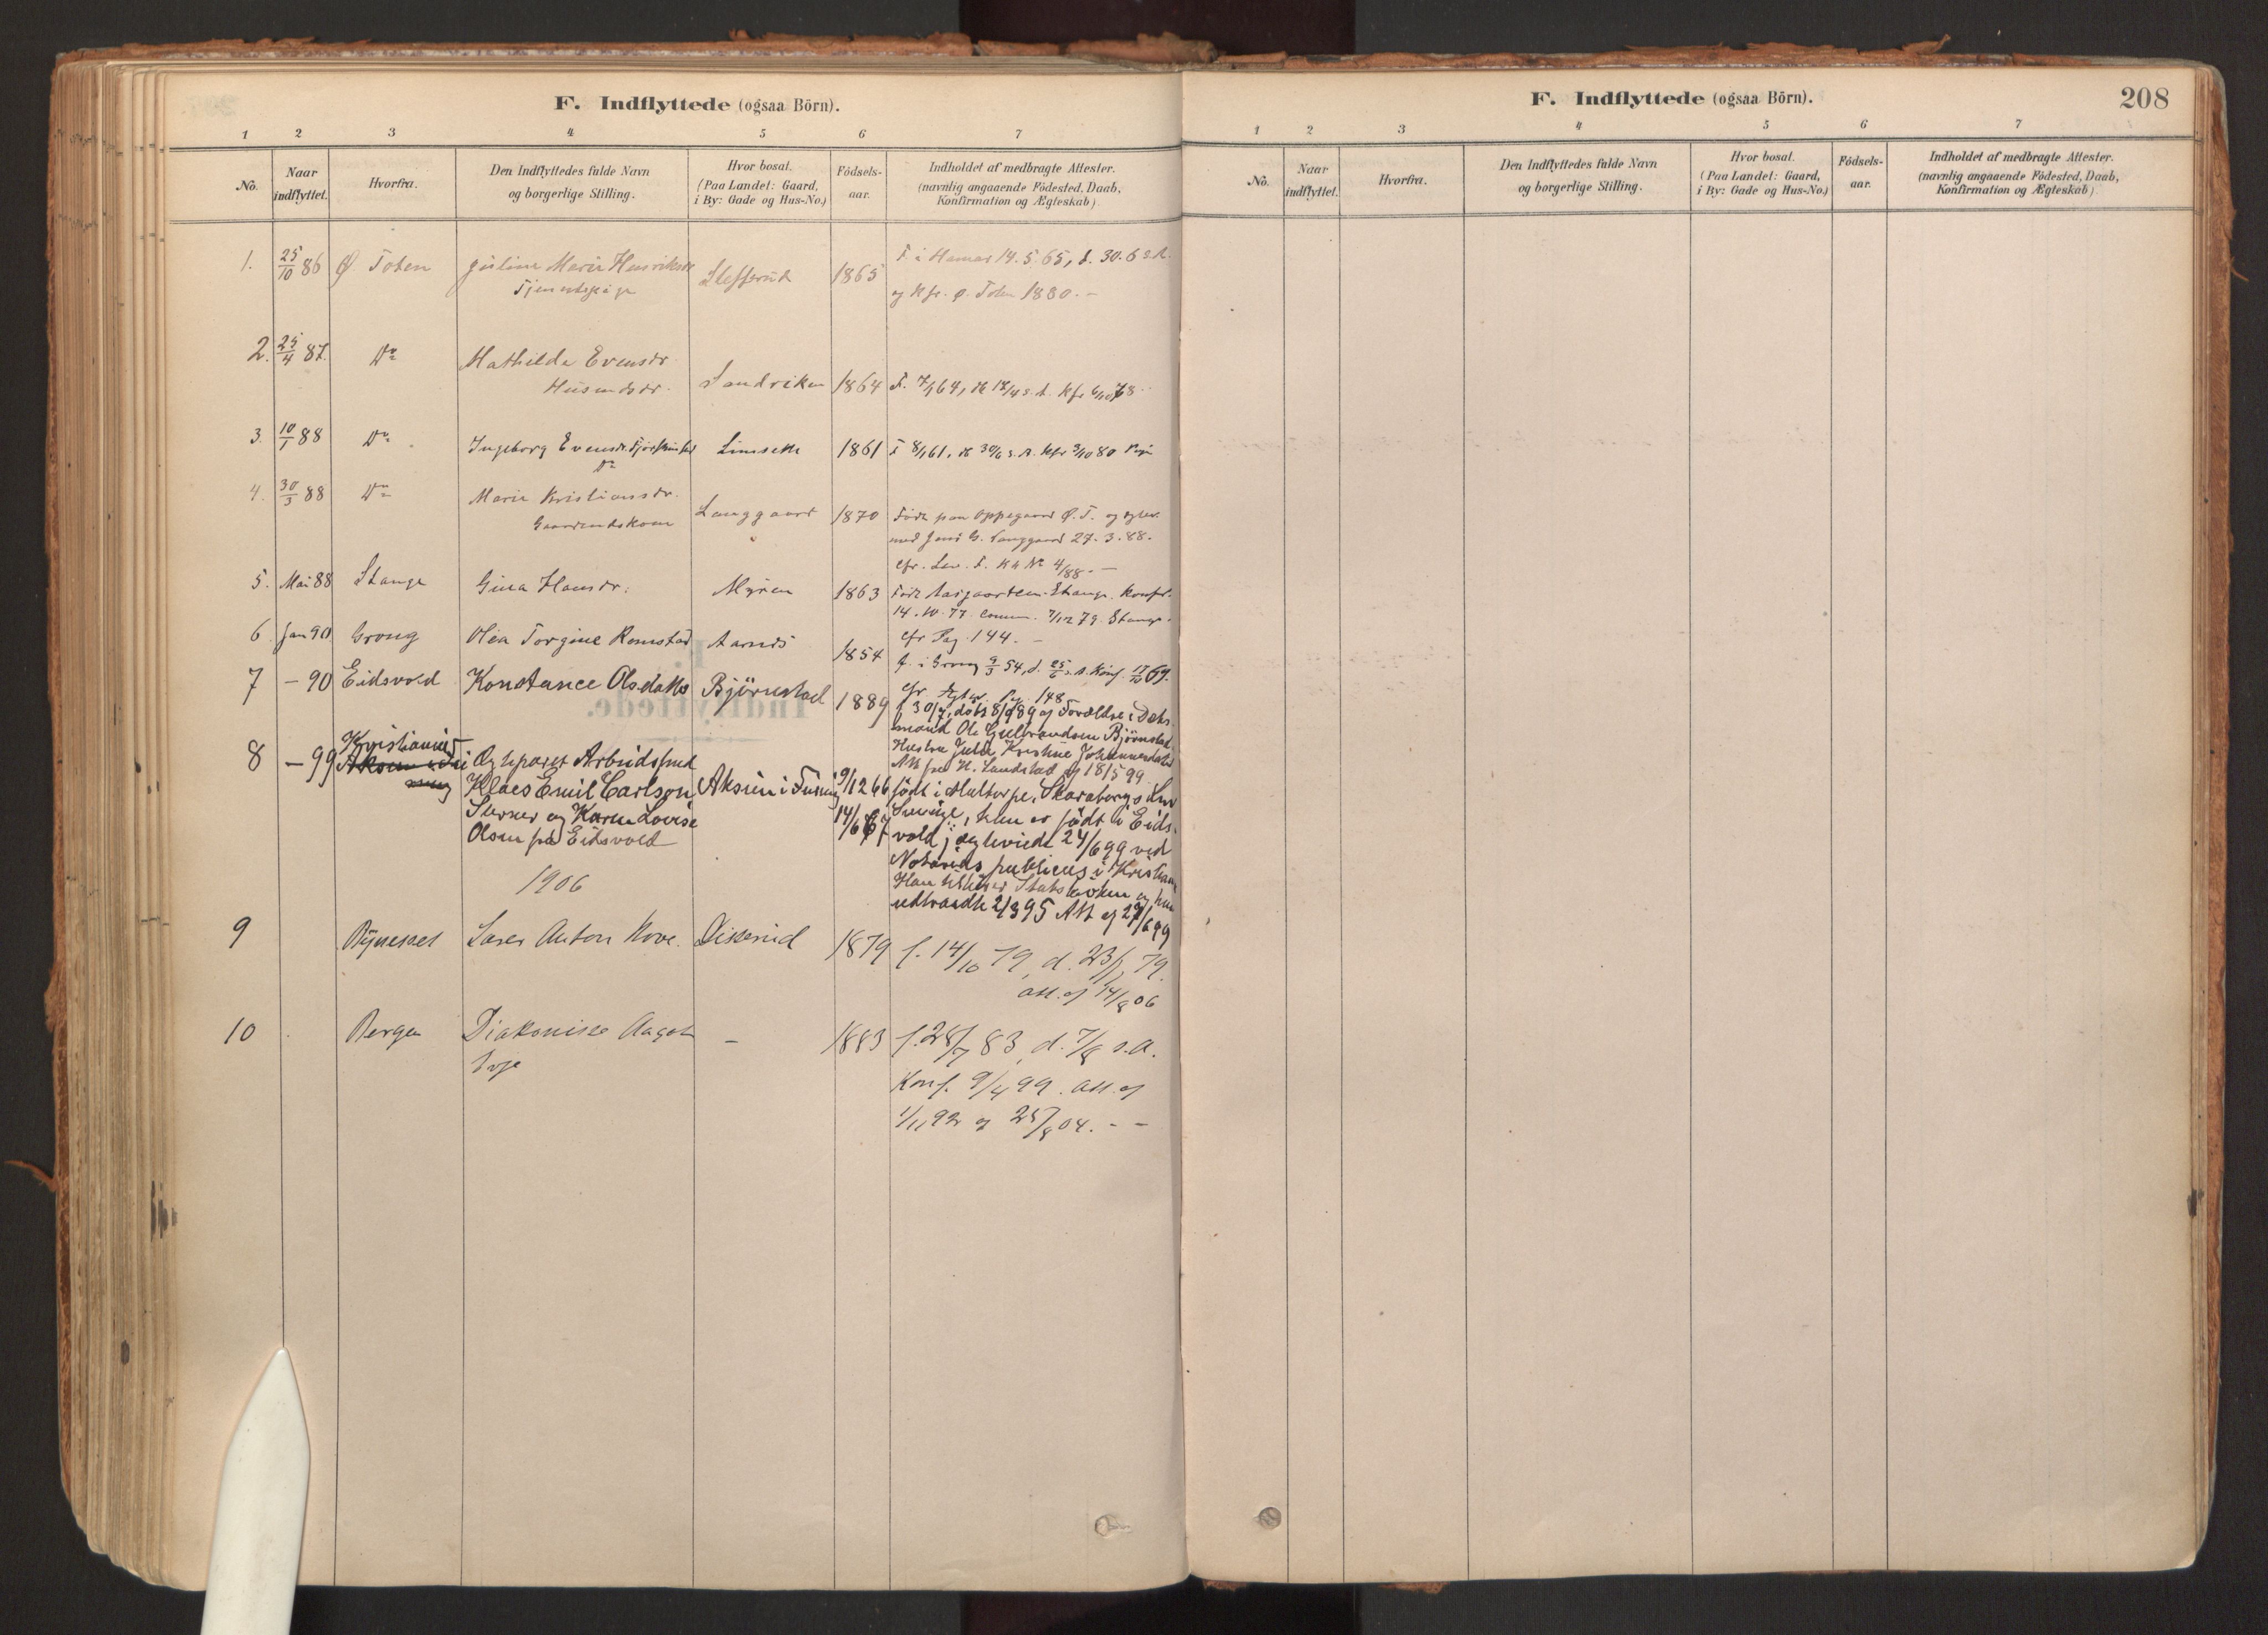 F. Indflyttede (ogsaa Börn).
1 2 3 4 5 6 7
No. Naar indflyttet. Hvorfra. Den Indflyttedes fulde Navn og borgerlige Stilling. Hvor bosat. (Paa Landet: Gaard, i By: Gade og Hus-No.) Födsels-aar. Indholdet af medbragte Attester. (navnlig angaaende Födested, Daab, Konfirmation og Ægteskab).
1. 25/10 86 Ø Toten Juline Marie Henriksdr 1865 F. i Hamar 14.5.65, d. 30.6 s.A.
Tjenestepige og Kfr. Ø. Toten 1880. –
2. 25/4 87. Do Mathilde Evensdr.
Husmdsdr. Sandviken 1864 F. 7/1 64, d 17/4 s.A. Kfr 6/10 78
3. 10/1 88 Do Ingeborg Evensdr. Limsæth 1861 F 8/1 61, d 30/6 s.A. Kfr 3/10 80
Do
4. 30/3 88 Do Marie Kristiansdr.
Gaardmdskone Langgaard 1870 Født paa Oppegaard Ø.T. og egtev.
med Jens G. Langgaard 27.3.88.
cfr. Lev. F. No 4/88. –
5. Mai 88 Stange Gina Hansdr. Myren 1863 Født Aasgaarden Stange. Konf.
14.10.77. Comm. 7/12 79. Stange.
cfr Pag. 144. –
6. Jan 90 Grong Olea Torgine Romstad Aarnes 1854 f. i Grong 9/3 54, d. 25/6 s.A. Konf. 17/10 69.
cfr. Egtev. Pag. 148
7 – 90 Eidsvold Konstance Olsdatter Björnstad 1889 f 30/7, døbt 8/9 89 af Forældre: Dags-
mand Ole Gulbrandsen Björnstad,
Hustru Julie Kristine Johannesdatter
Att fra H. Landstad af 18/5 99
8 – 99 Kristiania
Egteparet Arbeidsmd
Klaes Emil Carlson Aksien i Furnes 9/12 66 født i Hultorpe, Skaraborgs Len
Sverige, hun er født i Eids-
Serner og Karen Lovise 14/6 67 vold; egteviede 24/6 99 ved
Olsen fra Eidsvold Notarius publicus i Kristiania
Han tilhører Statskirken og hun
udtraadte 2/3 95 Att af 27/6 99
1906
9 Bynesset Lars Anton Hove. Disserud 1879 f. 14/10 79, d. 23/11 79.
att. af 14/8 06
10 Bergen Diakonisse Aagot – 1883 f. 28/7 83, d. 7/8 s.A.
Konf. 9/4 99. att. af
1/11 92 og 25/8 04. – –
F. Indflyttede (ogsaa Börn).
208
1 2 3 4 5 6 7
No. Naar indflyttet. Hvorfra. Den Indflyttedes fulde Navn og borgerlige Stilling. Hvor bosat. (Paa Landet: Gaard, i By: Gade og Hus-No.) Födsels-aar. Indholdet af medbragte Attester. (navnlig angaaende Födested, Daab, Konfirmation og Ægteskab).